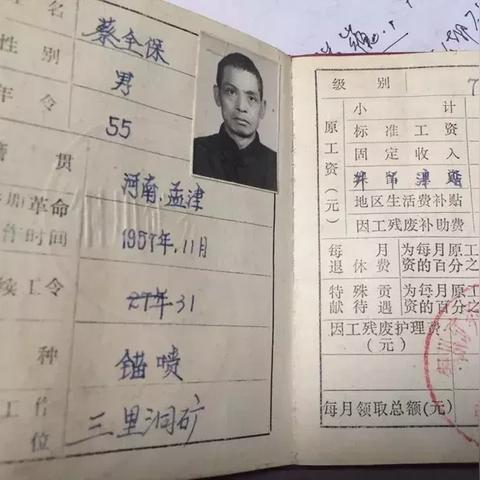 名 蔡全保
性 别 男
年 令 55
贯 河南.孟津
加革命
作时间 1957年.11月
续工令 27年 31
种 锚喷
工作
位 三里洞矿
级 别 7
原工资(元)
小 计
标 准 工 资
固 定 收 入
地区生活费补贴
因工残废补助费
每 月 为每月原工
退 休 费 资的百分之
特 殊 贡 为每月原工
献 待 遇 资的百分之
因工残废护理费
(元)
每月领取总额(元)